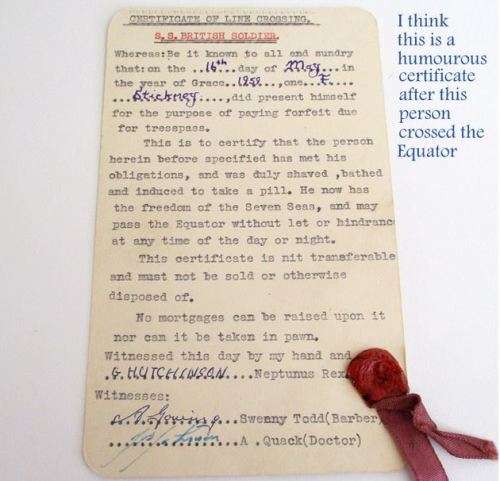 CERTIFICATE OF LINE CROSSING.
S.S. BRITISH SOLDIER.
Whereas:Be it known to all and sundry
that:on the ..16th..day of May...in
the year of Grace..1959..,one..F....
...Stickney....,did present himself
for the purpose of paying forfeit due
for tresspass.
This is to certify that the person
herein before specified has met his
obligations, and was duly shaved ,bathed
and induced to take a pill. He now has
the freedom of the Seven Seas, and may
pass the Equator without let or hindranc
at any time of the day or night.
This certificate is nit transferable
and must not be sold or otherwise
disposed of.
No mortgages can be raised upon it
nor can it be taken in pawn.
Witnessed this day by my hand and
.G.HUTCHINSON....Neptunus Rex
Witnesses:
Swenny Todd(Barber)
A .Quack(Doctor)
I think
this is a
humourous
certificate
after this
person
crossed the
Equator